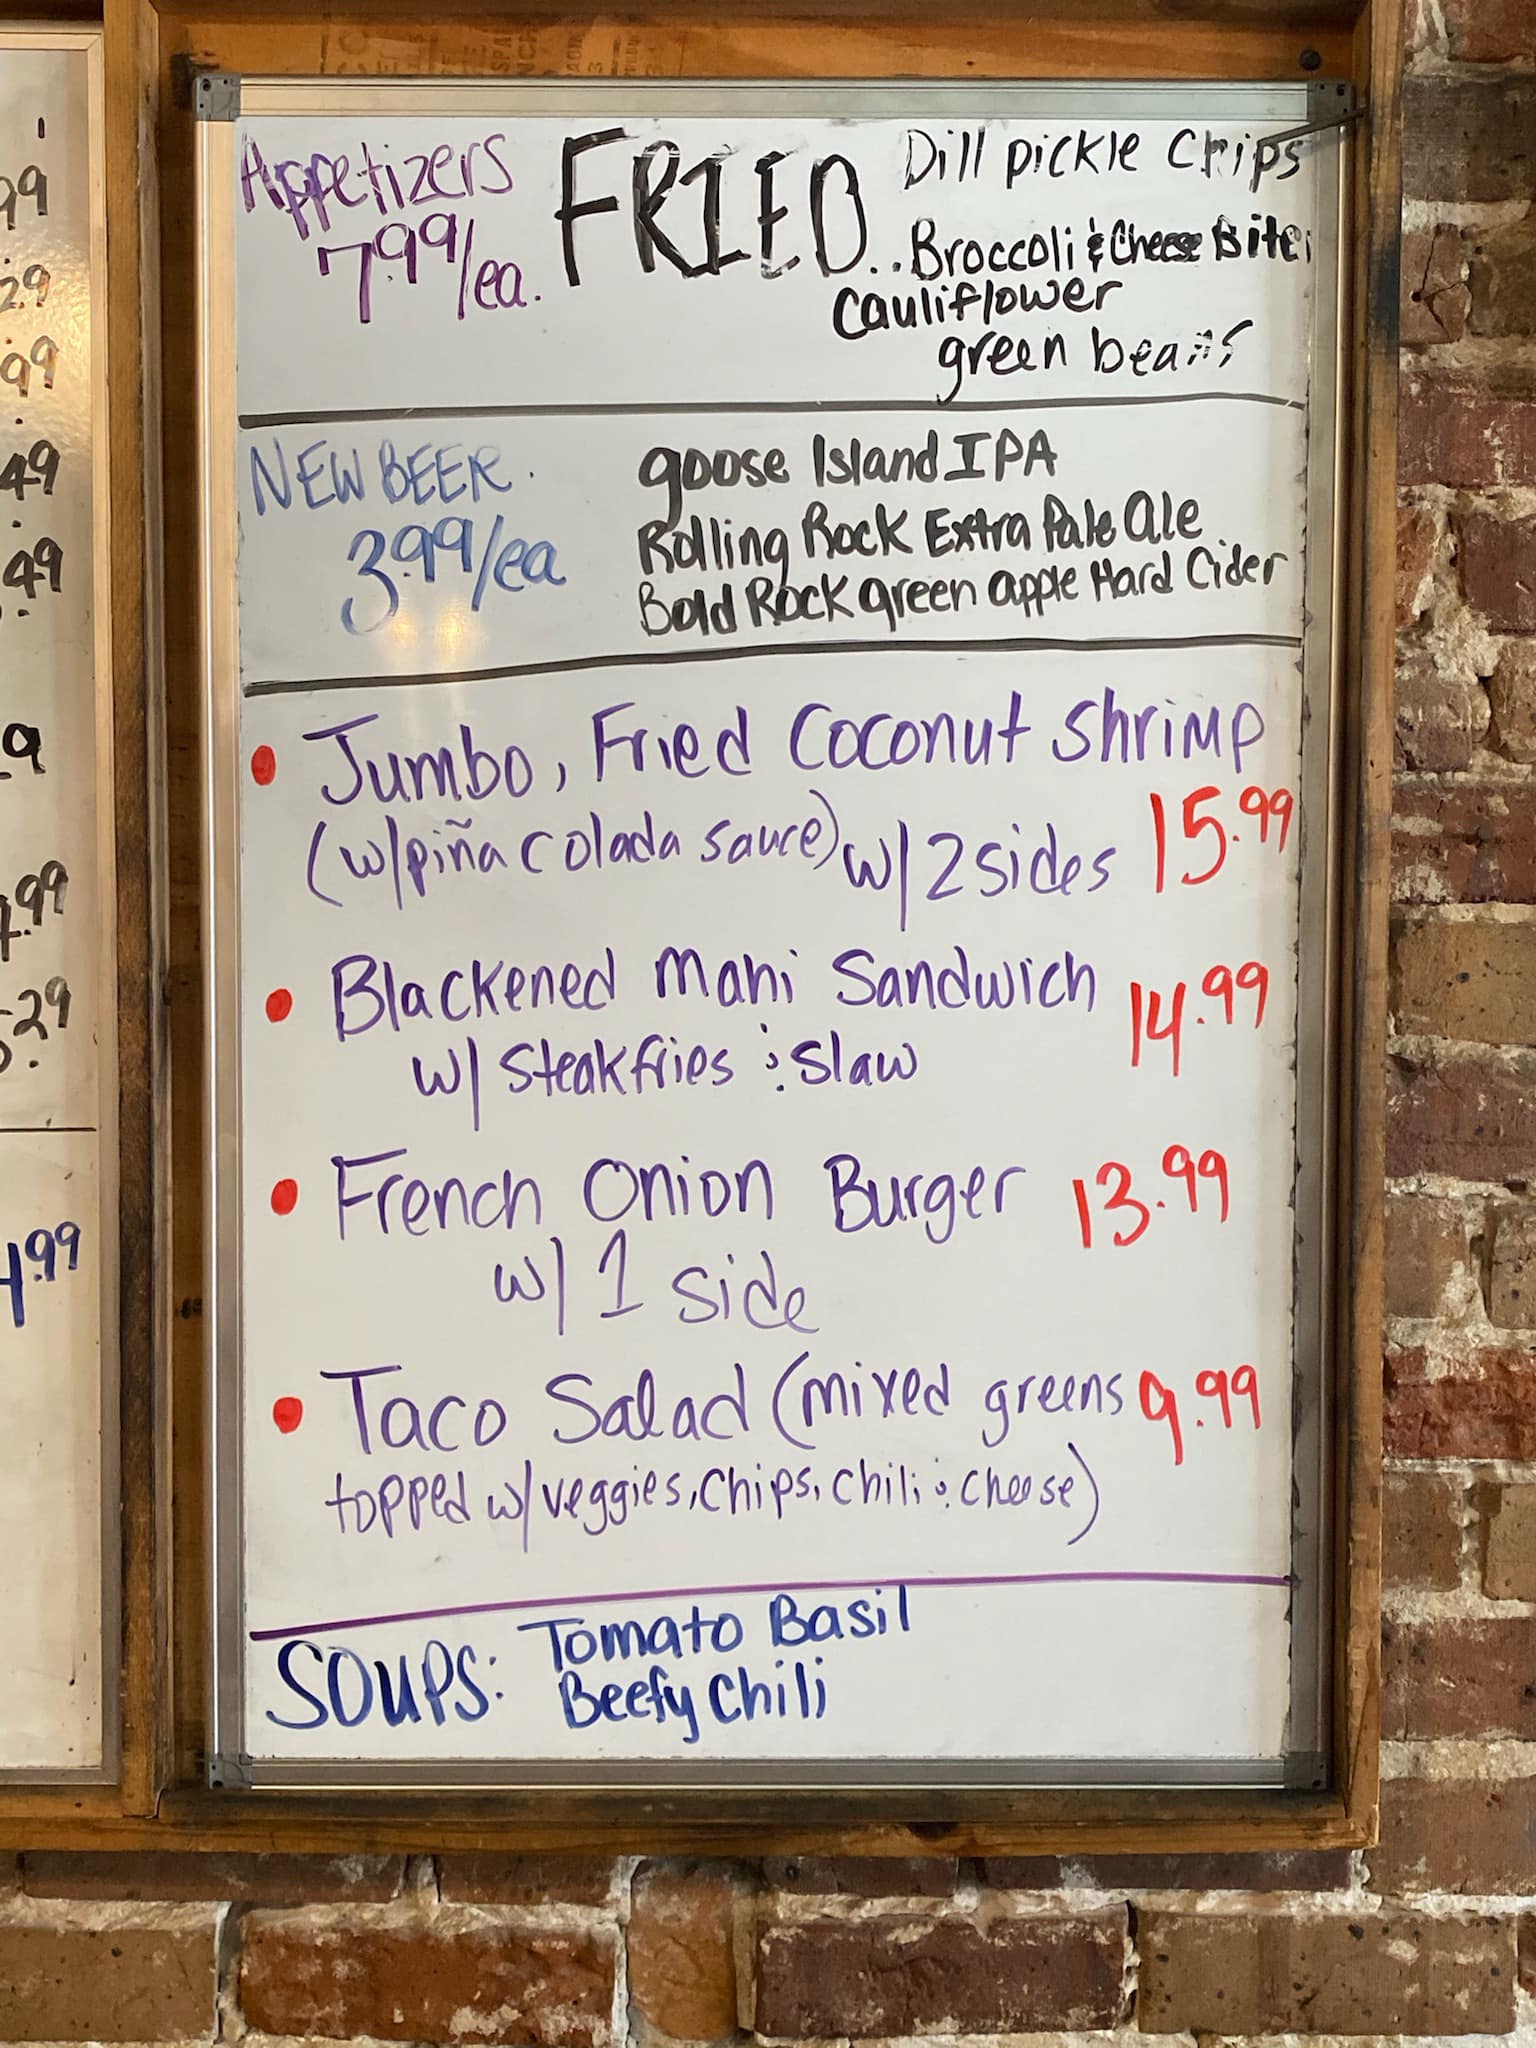 Appetizers
7.99/ea.
FRIED...
Dill pickle Chips
Broccoli & Cheese Bites
Cauliflower
green beans
NEW BEER.
3.99/ea
goose Island IPA
Rolling Rock Extra Pale Ale
Bold Rock green apple Hard Cider
• Jumbo, Fried Coconut Shrimp
(w/piña colada sauce) w/ 2 sides 15.99
• Blackened Mahi Sandwich 14.99
w/ steak fries & slaw
• French Onion Burger 13.99
w/ 1 side
• Taco Salad (mixed greens 9.99
topped w/ veggies, chips, chili & cheese)
SOUPS: Tomato Basil
Beefy Chili
99
29
99
49
49
9
.99
29
4.99